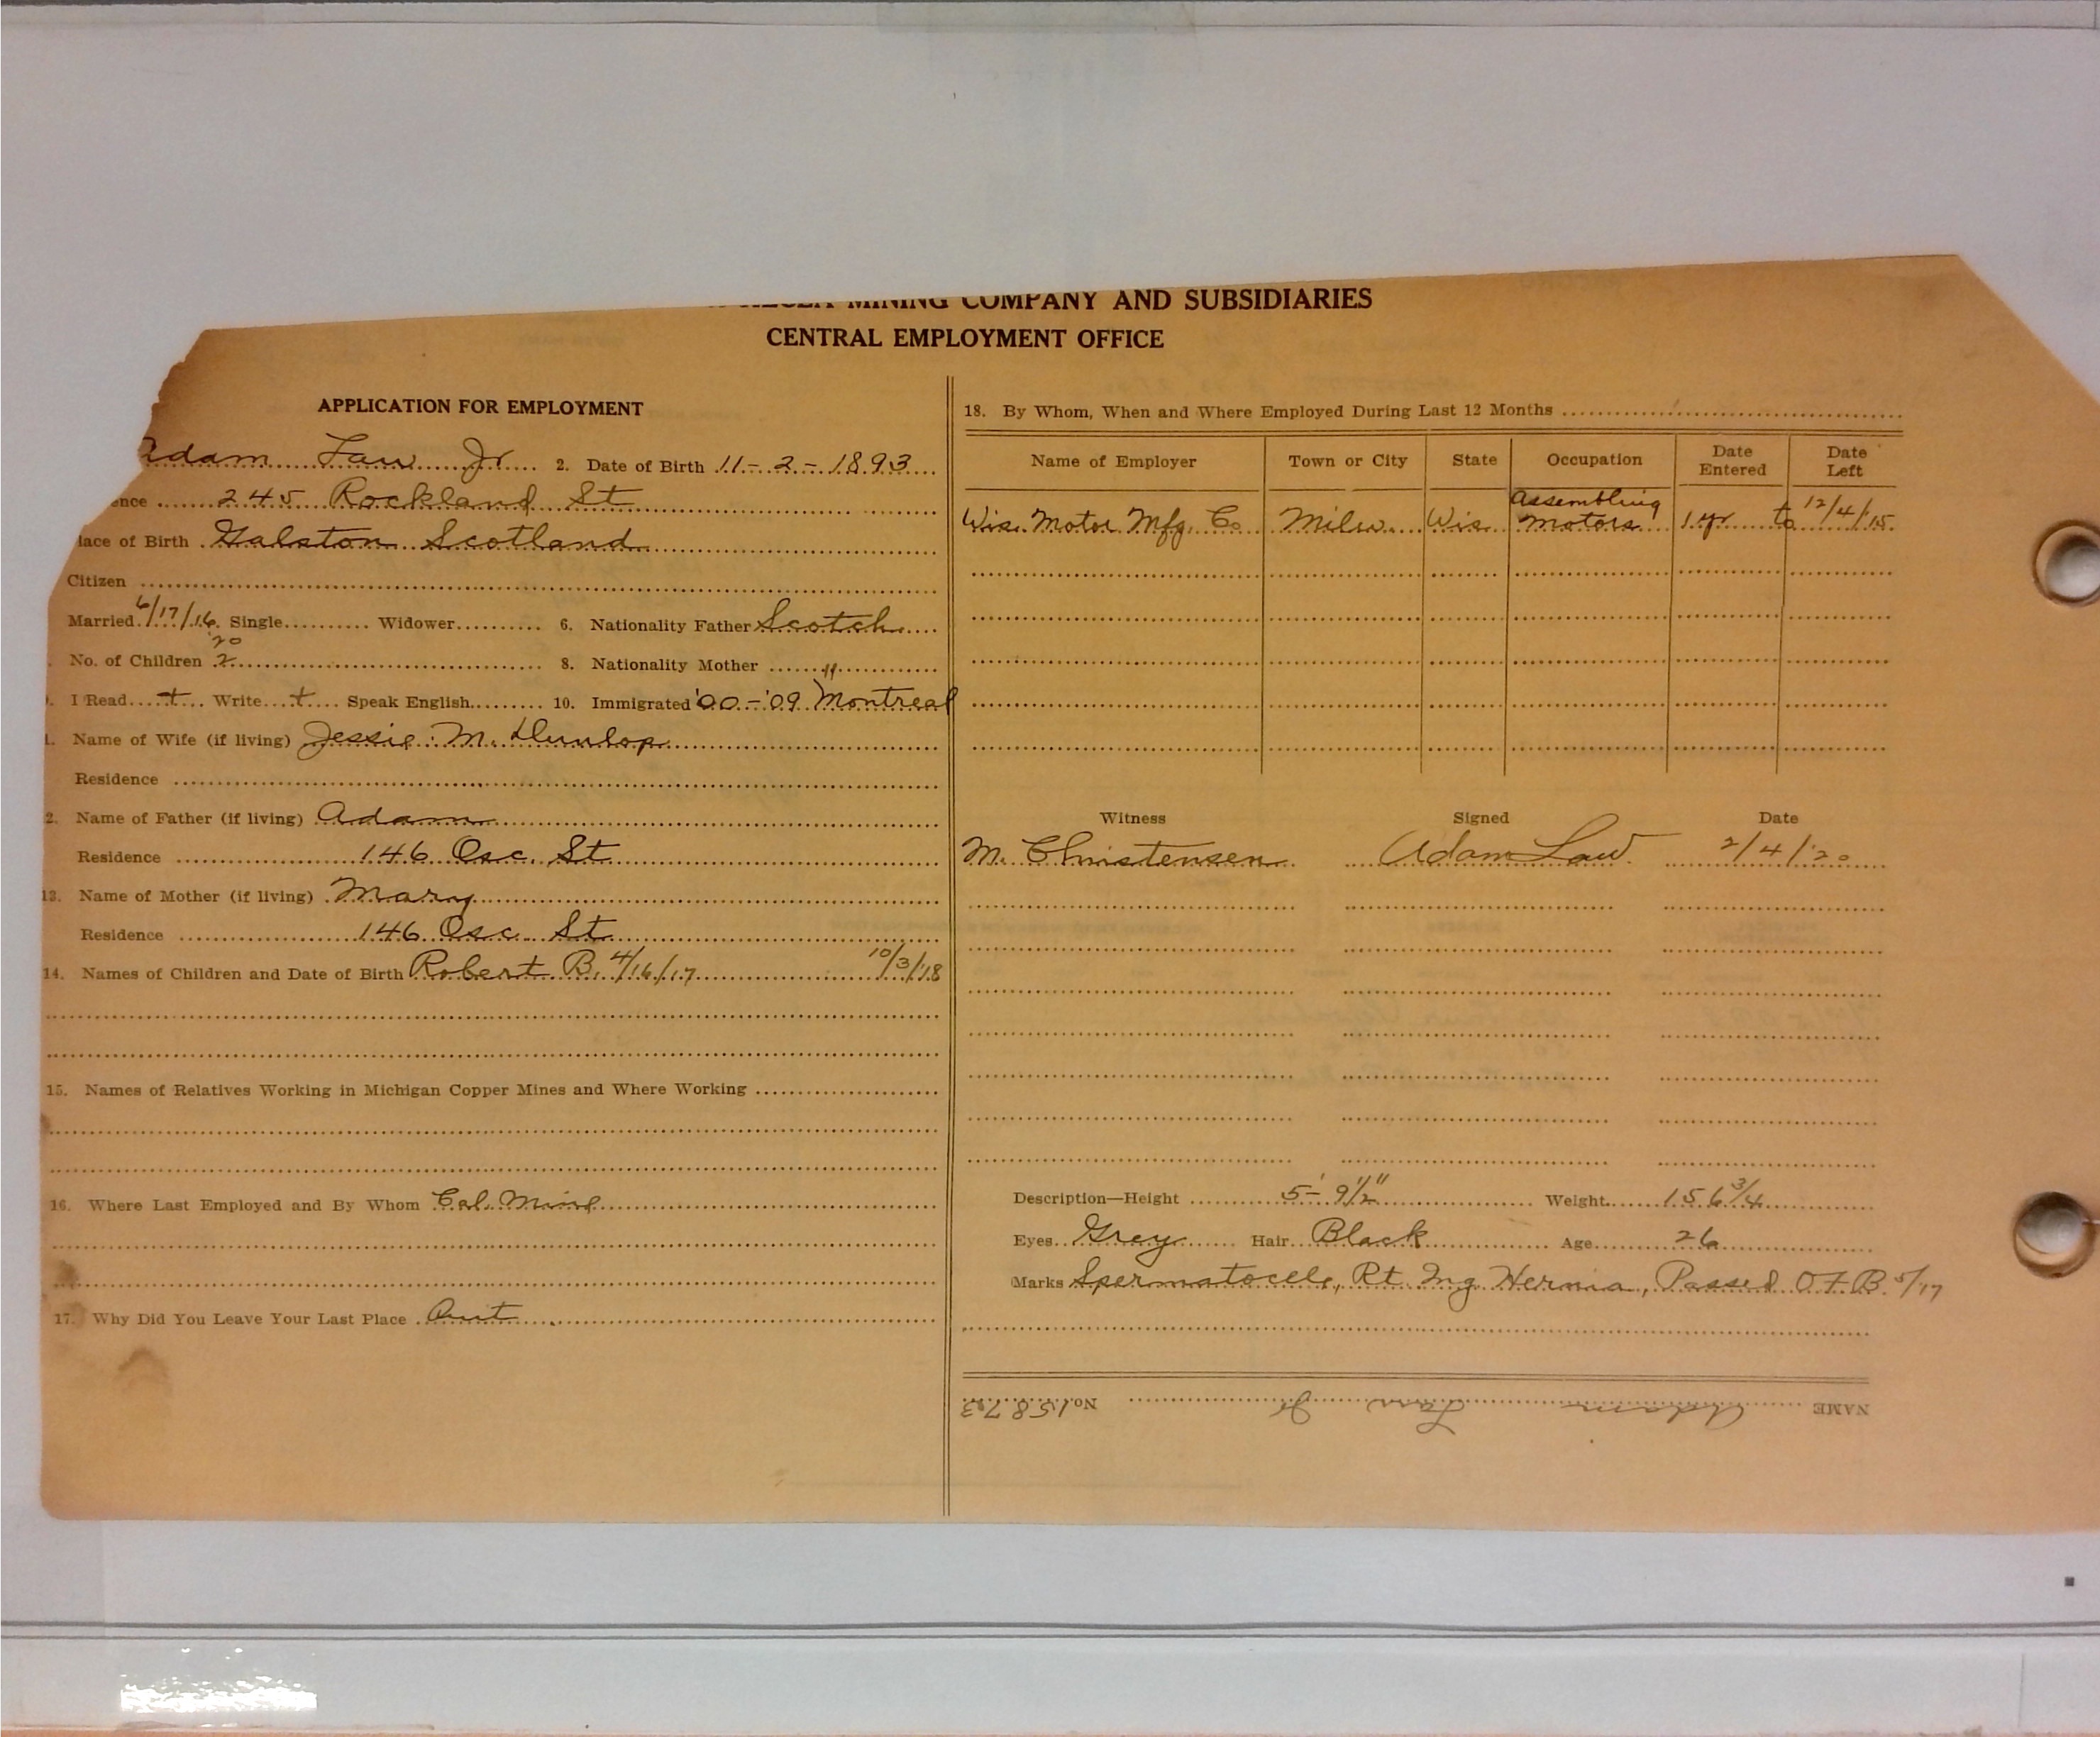 HECLA MINING COMPANY AND SUBSIDIARIES
CENTRAL EMPLOYMENT OFFICE
APPLICATION FOR EMPLOYMENT
Adam Law Jr 2. Date of Birth 11-2-1893
ence 245 Rockland St
lace of Birth Galston Scotland
Citizen
Married 6/17/16 Single Widower 6. Nationality Father Scotch
No. of Children 2 '20 8. Nationality Mother "
I Read + Write + Speak English 10. Immigrated '00-'09 Montreal
1. Name of Wife (if living) Jessie M. Dunlop
Residence
2. Name of Father (if living) Adam
Residence 146 Osc. St
13. Name of Mother (if living) Mary
Residence 146 Osc. St
14. Names of Children and Date of Birth Robert B. 4/16/17 10/3/18
15. Names of Relatives Working in Michigan Copper Mines and Where Working
16. Where Last Employed and By Whom Cal. Mine
17. Why Did You Leave Your Last Place Quit
18. By Whom, When and Where Employed During Last 12 Months
Name of Employer Town or City State Occupation Date Entered Date Left
Wis. Motor Mfg. Co Milw. Wis. Assembling Motors 1 yr to 12/4/15
Witness Signed Date
M. Christensen Adam Law 2/4/20
Description—Height 5'-9½" Weight 156¾
Eyes Grey Hair Black Age 26
Marks Spermatocele, Rt. Ing Hernia, Passed O.F.B. 5/17
NAME Adam Law Jr No. 15873